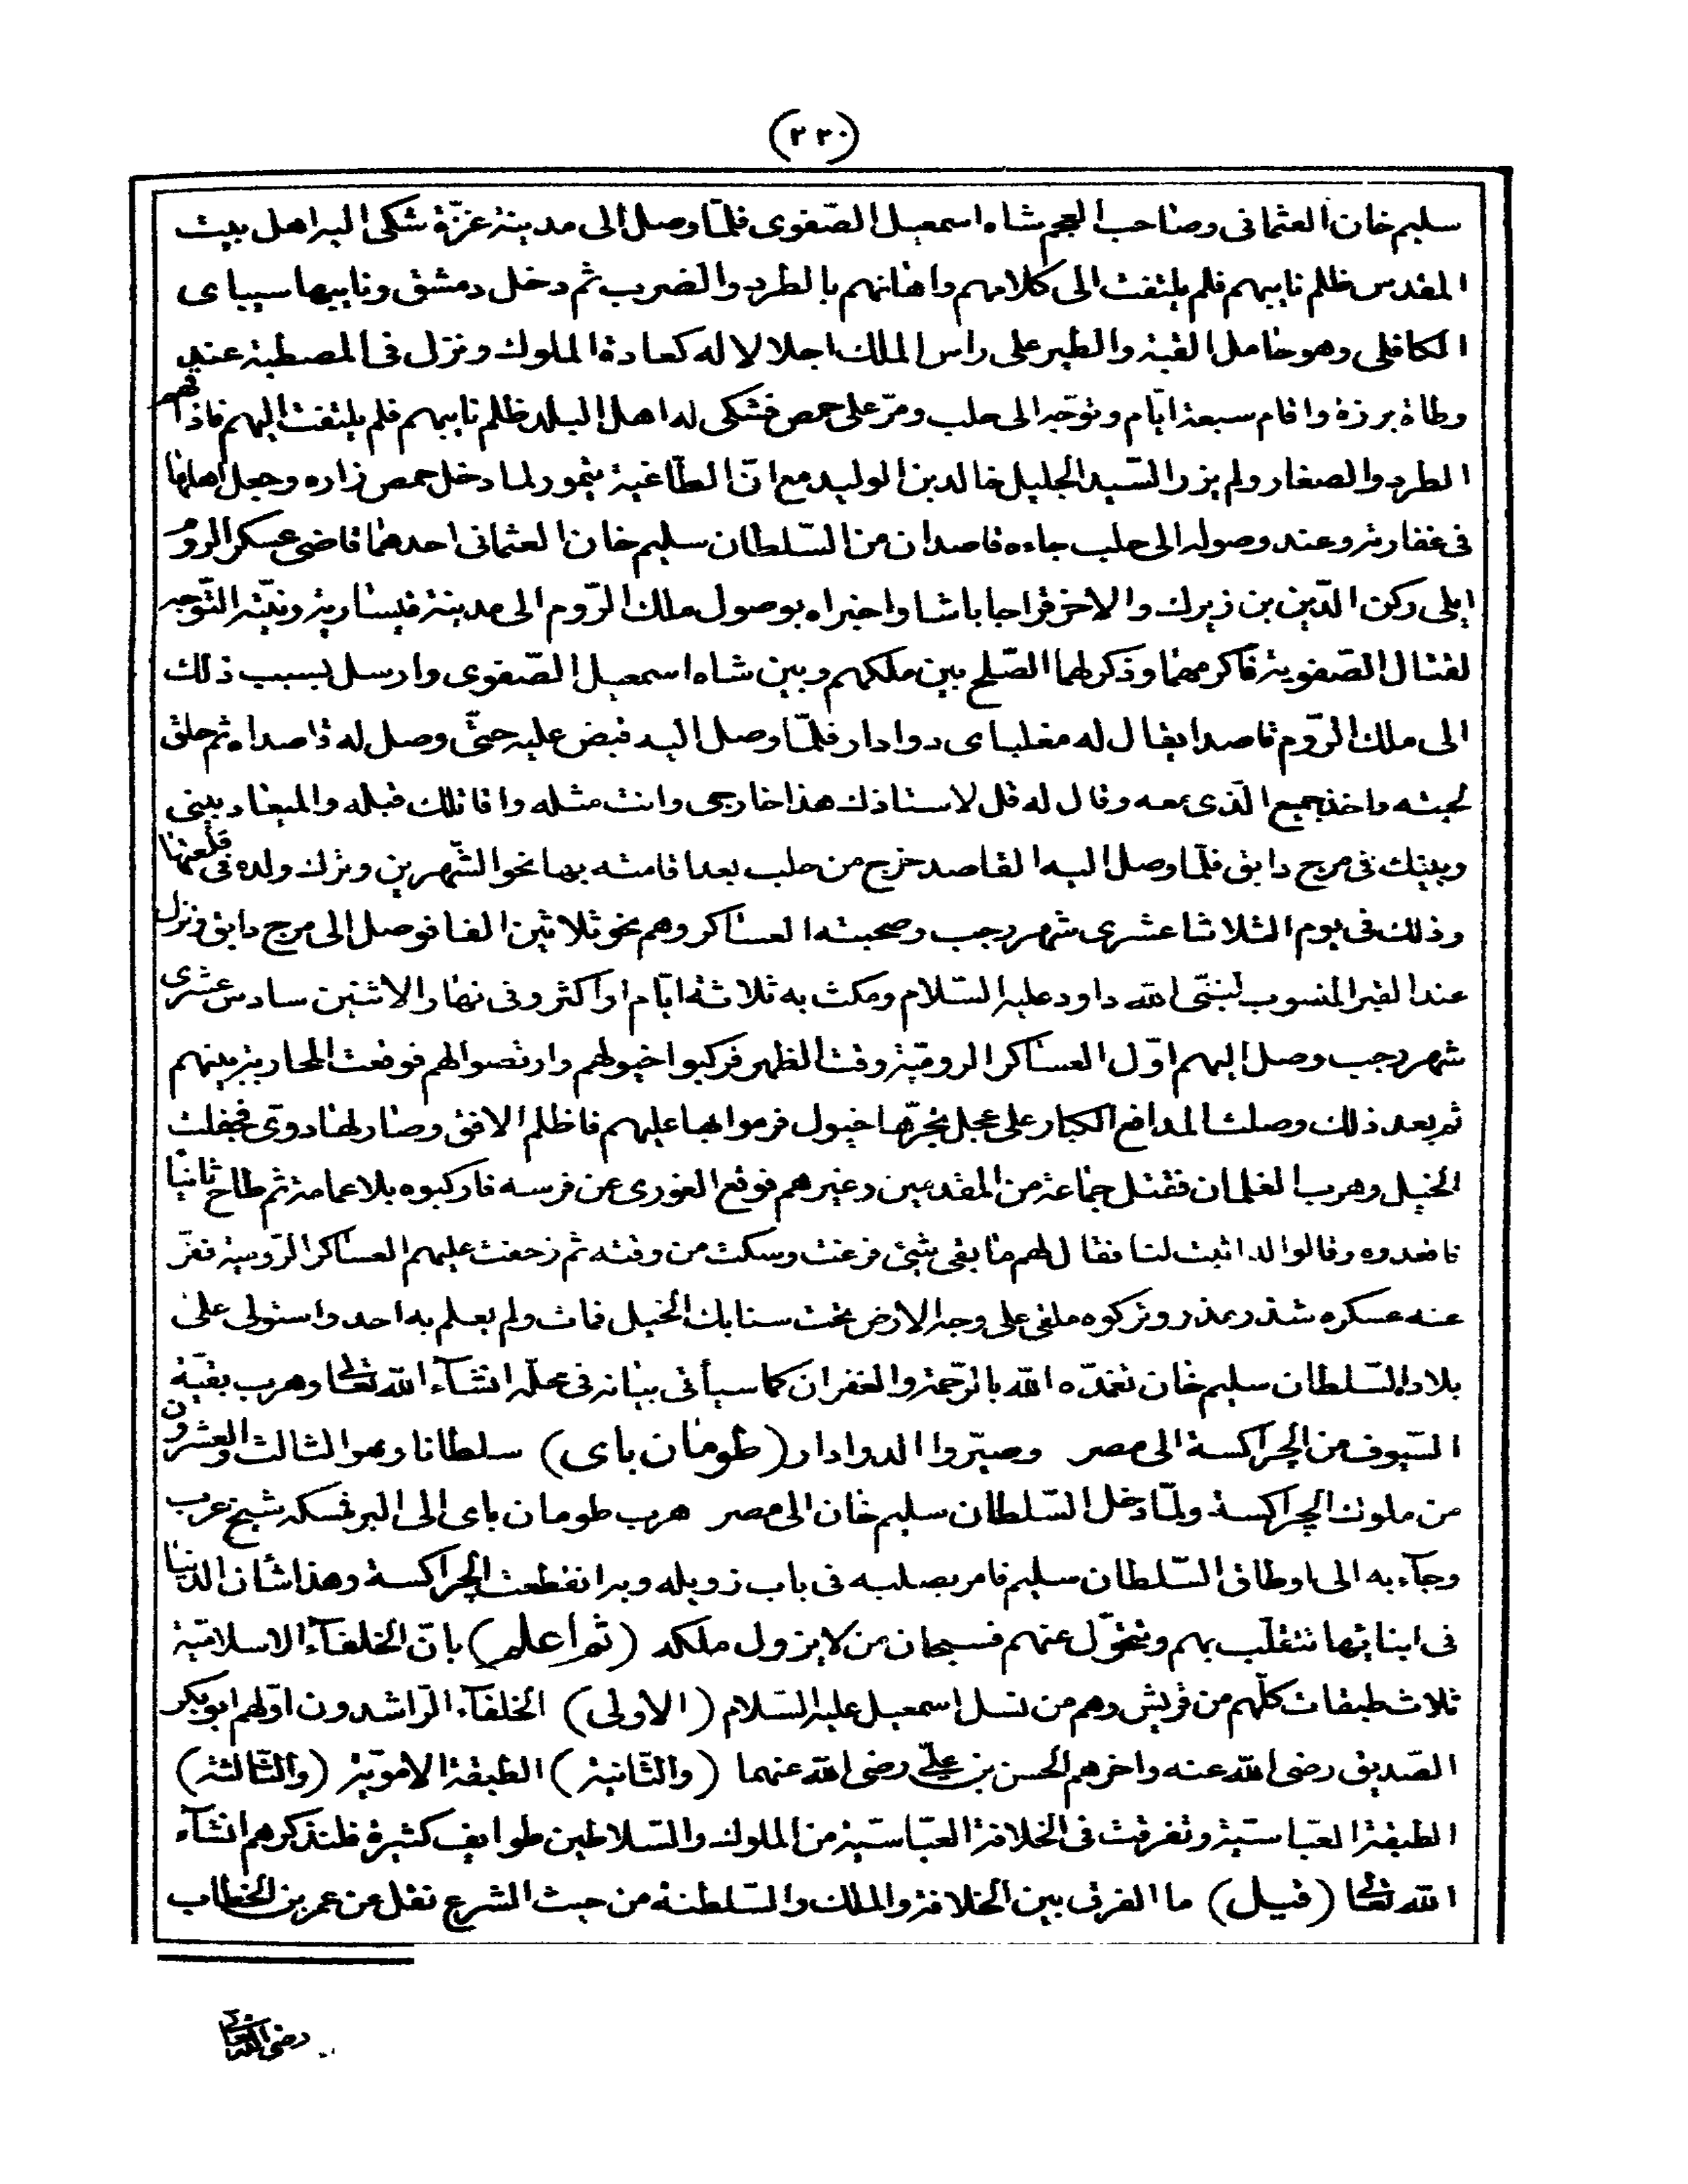 (٢٢٠)
سليم خان العثمانى وصاحب العجم شاه اسمعيل الصّفوى فلمّا وصل الى مدينة غزّة شكى اليه اهل بيت
المقدس ظلم نايبهم فلم يلتفت الى كلامهم واهانهم بالطرد والضرب ثم دخل دمشق ونايبها سيباى
الكافلى وهو حامل القبة والطير على راس الملك اجلالا له كعادة الملوك ونزل فى المصطبة عند
وطاة برزة واقام سبعة ايّام وتوجّه الى حلب ومرّ على حمص فشكى له اهل البلد ظلم نايبهم فلم يلتفت اليهم فاذاقهم
الطرد والصغار ولم يزر السّيد الجليل خالد بن الوليد مع انّ الطّاغية تيمور لما دخل حمص زاره وجعل اهلها
فى غفارته وعند وصوله الى حلب جاءه قاصدان من السّلطان سليم خان العثمانى احدهما قاضى عسكر الروم
ايلى ركن الدّين بن زيرك والاخر قراجا باشا واخبراه بوصول ملك الرّوم الى مدينة قيسارية ونيّته التّوجه
لقتال الصّفوية فاكرمهما وذكر لهما الصّلح بين ملكهم وبين شاه اسمعيل الصّفوى وارسل بسبب ذلك
الى ملك الرّوم قاصدا يقال له مغلباى دوادار فلمّا وصل اليه قبض عليه حتّى وصل له قاصداه ثم حلق
لحيته واخذ جميع الّذى معه وقال له قل لاستاذك هذا خارجى وانت مثله واقاتلك قبله والميعاد بينى
وبينك فى مرج دابق فلمّا وصل اليه القاصد خرج من حلب بعد اقامته بها نحو الشّهرين وترك ولده فى قلعتها
وذلك فى يوم الثلاثا عشرى شهر رجب وصحبته العساكر وهم نحو ثلاثين الفا فوصل الى مرج دابق ونزل
عند القبر المنسوب لنبىّ الله داود عليه السّلام ومكث به ثلاثة ايّام او اكثر وفى نهار الاثنين سادس عشرى
شهر رجب وصل اليهم اوّل العساكر الروميّة وقت الظهر فركبوا خيولهم وارتصوا لهم فوقعت المحاربة بينهم
ثم بعد ذلك وصلت المدافع الكبار على عجل تجرّها خيول فرموا بها عليهم فاظلم الافق وصار لها دوىّ فجفلت
الخيل وهرب الغلمان فقتل جماعة من المقدمين وغيرهم فوقع الغورى عن فرسه فاركبوه بلا عمامة ثم طاح ثانيا
فاقعدوه وقالوا له اثبت لنا فقال لهم ما بقى شئ فرغت وسكت من وقته ثم زحفت عليهم العساكر الرّومية ففرّ
عنه عسكره شذر مذر وتركوه ملقى على وجه الارض تحت سنابك الخيل فمات ولم يعلم به احد واستولى على
بلاده السّلطان سليم خان تغمّده الله بالرّحمة والغفران كما سيأتى بيانه فى محلّه انشآء الله تعالى وهرب بقيّة
السّيوف من الجراكسة الى مصر وصيّروا الدوادار (طومان باى) سلطانا وهو الثالث والعشرون
من ملوك الجراكسة ولمّا دخل السّلطان سليم خان الى مصر هرب طومان باى الى البر فمسكه شيخ عرب
وجآء به الى اوطاق السّلطان سليم فامر بصلبه فى باب زويله وبه انقطعت الجراكسة وهذا شأن الدنيا
فى ابنائها تتقلّب بهم وتتحوّل عنهم فسبحان من لا يزول ملكه (ثم اعلم) بانّ الخلفآء الاسلاميّة
ثلاث طبقات كلّهم من قريش وهم من نسل اسمعيل عليه السّلام (الاولى) الخلفآء الرّاشدون اوّلهم ابو بكر
الصّديق رضى الله عنه واخرهم الحسن بن علىّ رضى الله عنهما (والثّانية) الطبقة الامويّة (والثّالثة)
الطبقة العبّاسيّة وتفرقت فى الخلافة العبّاسيّة من الملوك والسّلاطين طوايف كثيرة فلنذكرهم انشآء
الله تعالى (قيل) ما الفرق بين الخلافة والملك والسّلطنة من حيث الشرع نقل عن عمر بن الخطاب
رضى الله تعالى